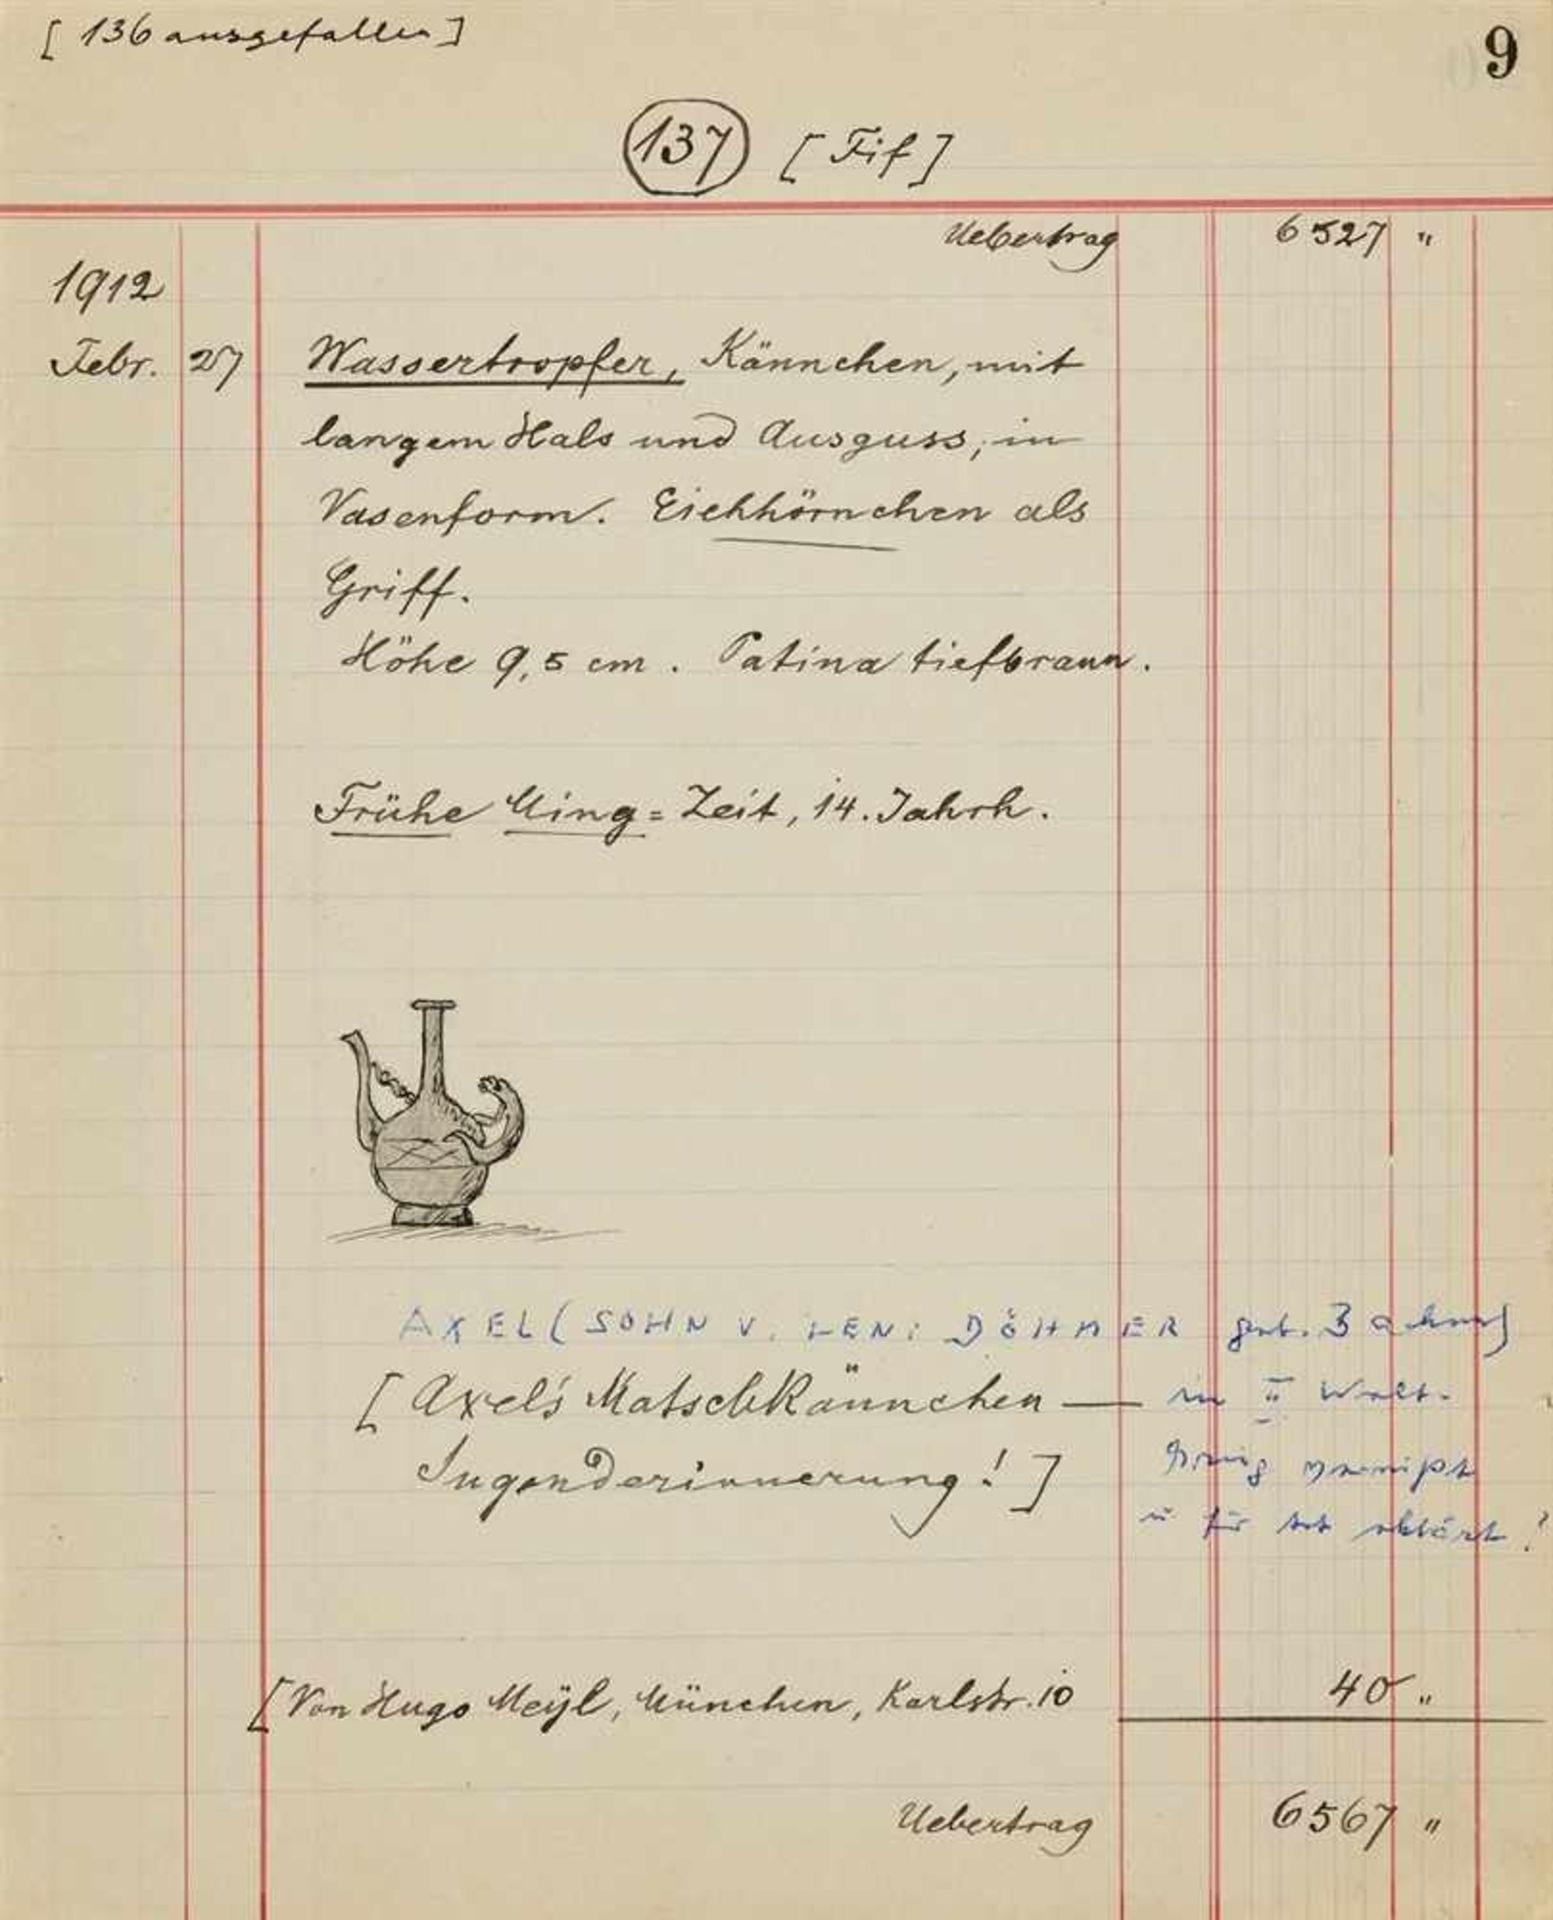 [ 136 ausgefallen ]
9
137 [ Fif ]
Uebertrag 6527 "
1912
Febr. 27 Wassertropfer, Kännchen, mit
langem Hals und Ausguss, in
Vasenform. Eichhörnchen als
Griff.
Höhe 9,5 cm. Patina tiefbraun.
Frühe Ming=Zeit, 14. Jahrh.
AXEL (SOHN V. LENI DÖHMER geb.
[ Axel's Matschkännchen — im II Welt-
Jugenderinnerung! ] krieg vermißt
u für tot erklärt!
[ Von Hugo Meyl, München, Karlstr. 10 40 "
Uebertrag 6567 "